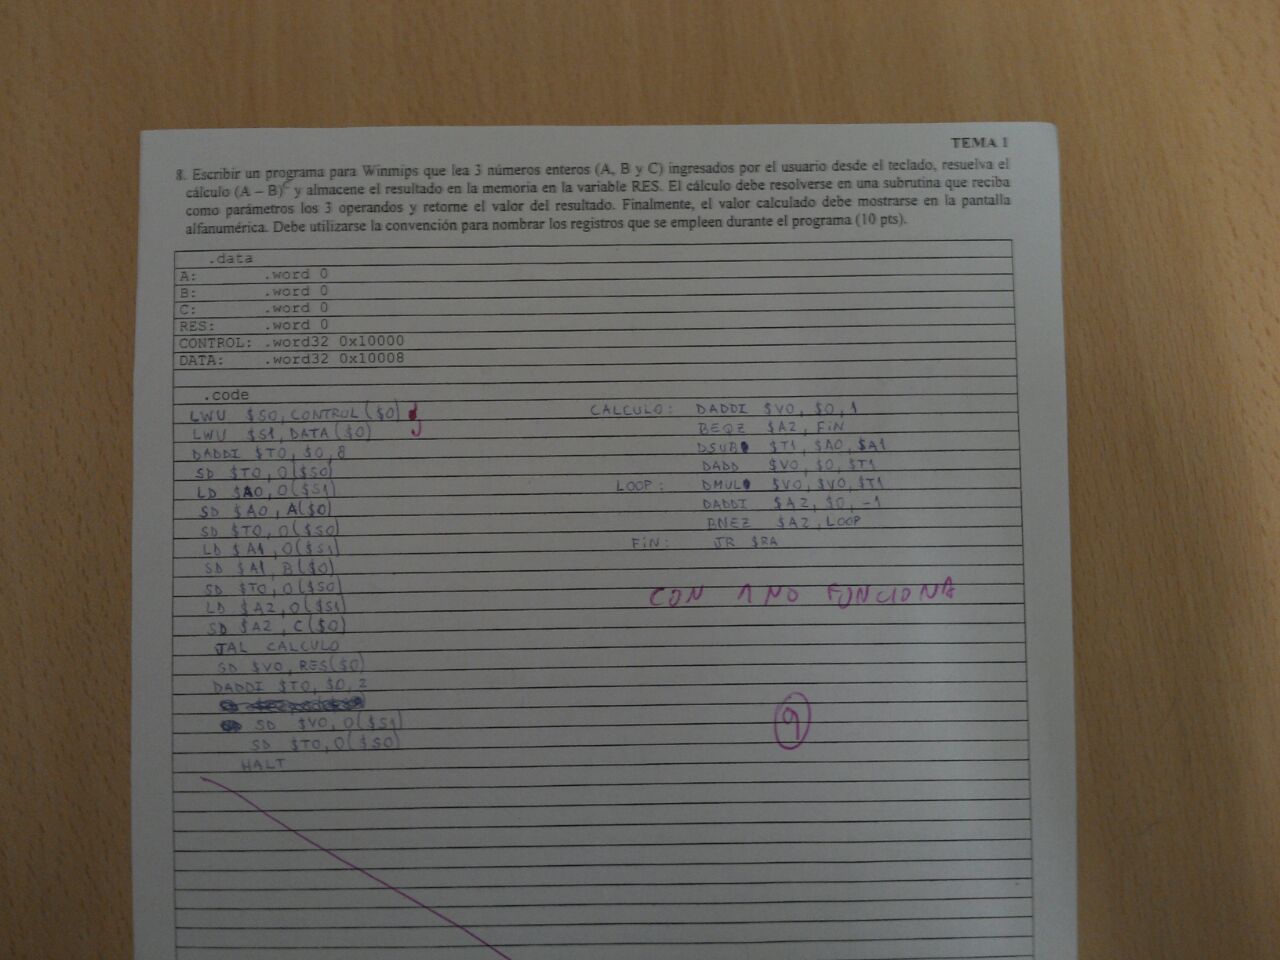 TEMA 1
8. Escribir un programa para Winmips que lea 3 números enteros (A, B y C) ingresados por el usuario desde el teclado, resuelva el
cálculo (A – B)^C y almacene el resultado en la memoria en la variable RES. El cálculo debe resolverse en una subrutina que reciba
como parámetros los 3 operandos y retorne el valor del resultado. Finalmente, el valor calculado debe mostrarse en la pantalla
alfanumérica. Debe utilizarse la convención para nombrar los registros que se empleen durante el programa (10 pts).
.data
A: .word 0
B: .word 0
C: .word 0
RES: .word 0
CONTROL: .word32 0x10000
DATA: .word32 0x10008
.code
LWU $S0, CONTROL($0)
LWU $S1, DATA($0)
DADDI $T0, $0, 8
SD $T0, 0($S0)
LD $A0, 0($S1)
SD $A0, A($0)
SD $T0, 0($S0)
LD $A1, 0($S1)
SD $A1, B($0)
SD $T0, 0($S0)
LD $A2, 0($S1)
SD $A2, C($0)
JAL CALCULO
SD $V0, RES($0)
DADDI $T0, $0, 2
SD $V0, 0($S1)
SD $T0, 0($S0)
HALT
CALCULO: DADDI $V0, $0, 1
BEQZ $A2, FIN
DSUB $T1, $A0, $A1
DADD $V0, $0, $T1
LOOP: DMUL $V0, $V0, $T1
DADDI $A2, $0, -1
BNEZ $A2, LOOP
FIN: JR $RA
CON 1 NO FUNCIONA
9